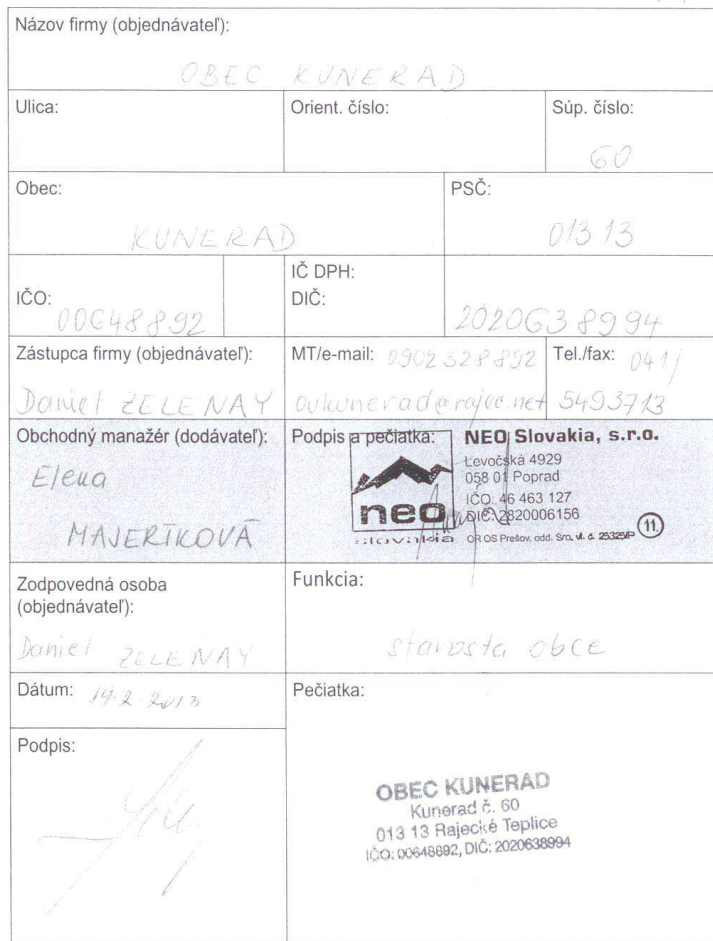 Názov firmy (objednávateľ):
OBEC KUNERAD
Ulica: Orient. číslo: Súp. číslo:
60
Obec: PSČ:
KUNERAD 013 13
IČO: 00648892 IČ DPH:
DIČ: 2020638994
Zástupca firmy (objednávateľ): MT/e-mail: 0902 328 892 Tel./fax: 041/
Daniel ZELENAY oukunerad@rajec.net 5493713
Obchodný manažér (dodávateľ): Podpis a pečiatka:
Elena
MAJERÍKOVÁ
NEO Slovakia, s.r.o.
Levočská 4929
058 01 Poprad
IČO: 46 463 127
DIČ: 2820006156
OR OS Prešov, odd. Sro, vl. č. 25325/P
11.
neo
slovakia
Zodpovedná osoba
(objednávateľ):
Daniel ZELENAY
Funkcia:
starosta obce
Dátum: 19.2.2013
Pečiatka:
Podpis:
OBEC KUNERAD
Kunerad č. 60
013 13 Rajecké Teplice
IČO: 00648892, DIČ: 2020638994